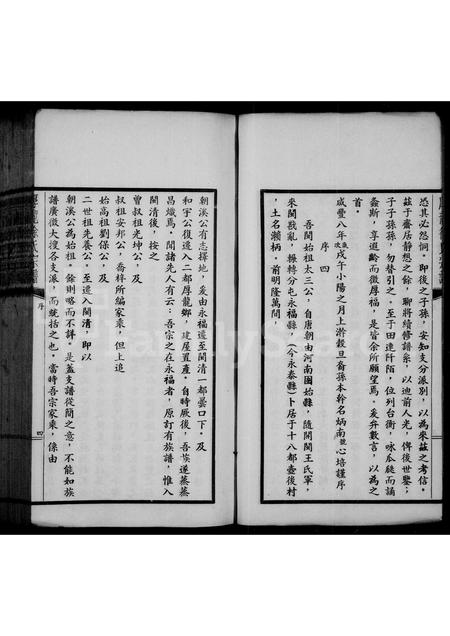 恐其必然惘。即後之子孫，安知支分派別，以為來茲之考信。
茲于齋居靜想之餘，聊將續修譜系，以迪前人光，俾後世鑒，
子子孫孫，勿替引之。至于田連阡陌，位列台衡，咏瓜瓞而誦
螽斯，享遐齡而徵厚福，是皆余所願望焉。爰弁數言，以為之
首。
咸豐八年歲次戊午小陽之月上澣穀旦裔孫本幹名炳南號心培謹序
序四
吾閩始祖太三公，自唐朝由河南固始縣，隨閩王氏軍，
來閩戡亂，輾轉分屯永福縣（今永泰縣）卜居于十八都壺後村
，土名瀨柄。前明隆萬間，
朝漢公有志擇地，爰由永福遷至閩清一都曇口下。及
和宇公復遷入二都厚龍鄉，建屋置產。自時厥後，吾族遂蒸蒸
昌熾焉。聞諸先人有云：吾宗之在永福者，原訂有族譜，惟入
閩清後，按之
曾叔祖光坤公，及
叔祖安邦公，喬梓所編家乘，但上追
始高祖劉保公，及
二世祖光養公。至遷入閩清，即以
朝漢公為始祖。餘則略而不詳。是蓋支譜從簡之意，不能如族
譜廣徵大搜各支派，而統括之也。當時吾宗家乘，係由
序
四